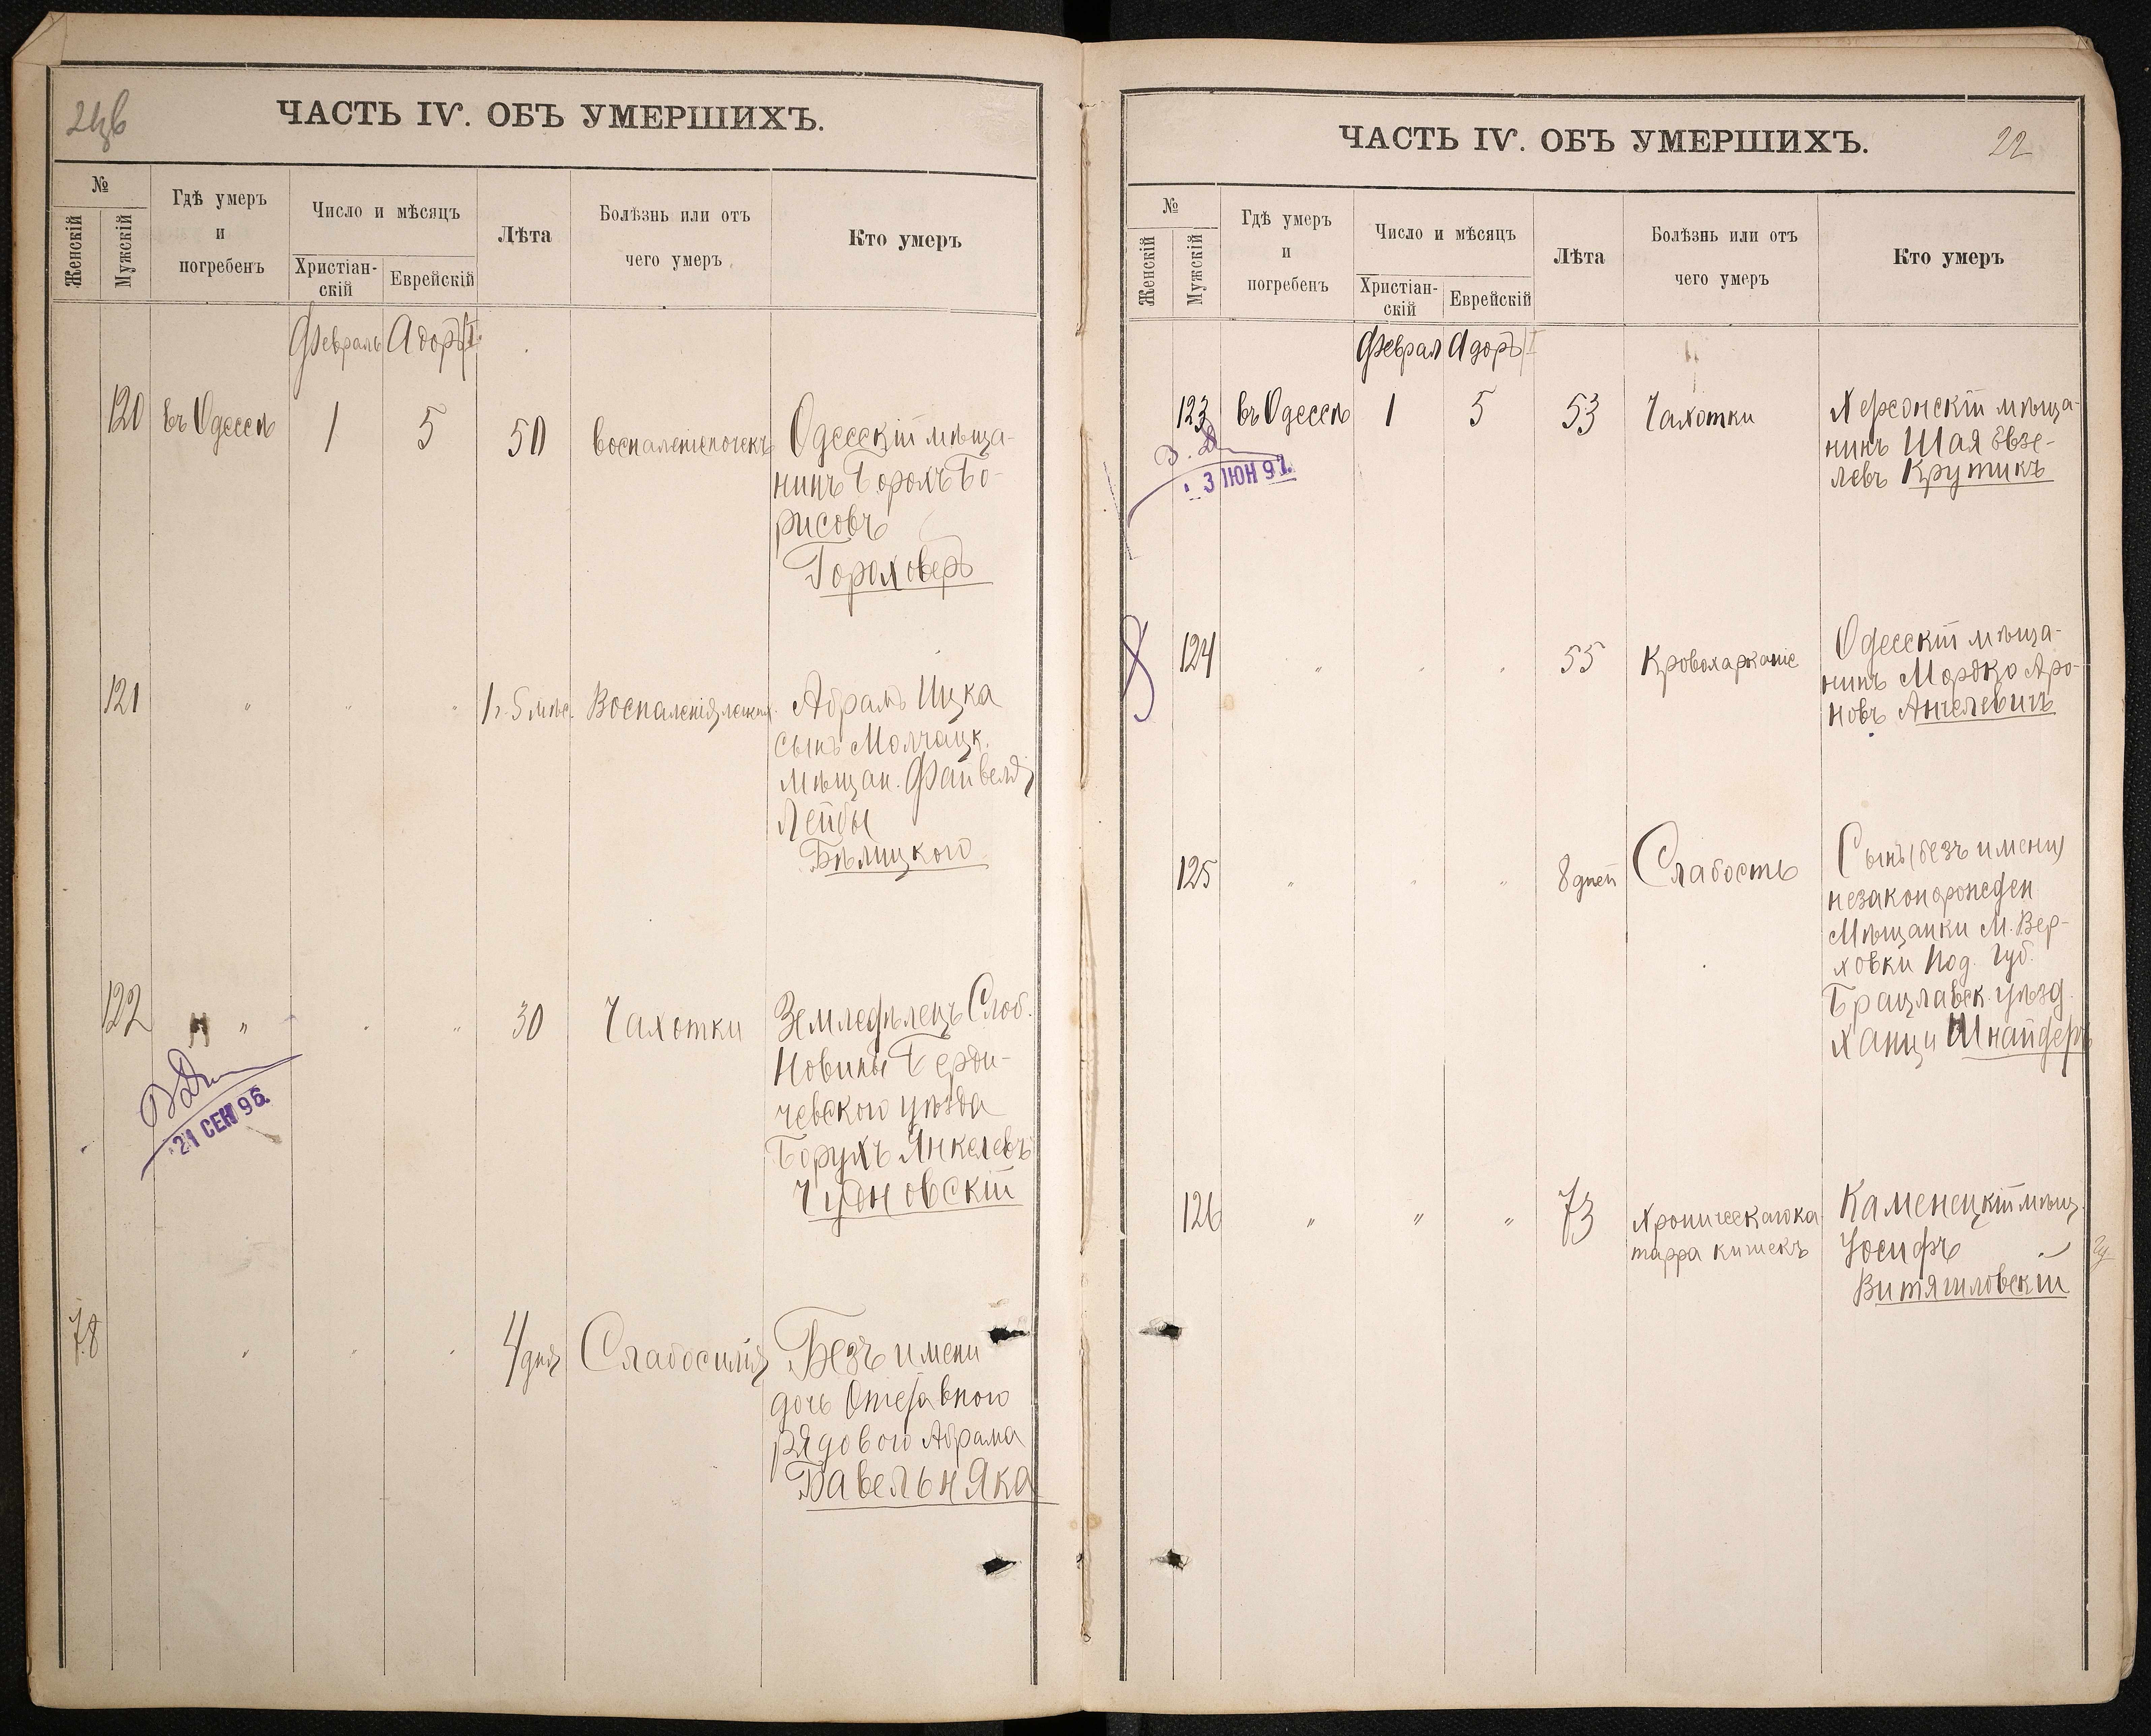 ЧАСТЬ IV. ОБЪ УМЕРШИХЪ.
№
Женскій
Мужскій
Гдѣ умеръ
и
погребенъ
Число и мѣсяцъ
Христіан-
скій
Еврейскій
Лѣта
Болѣзнь или отъ
чего умеръ
Кто умеръ
Февраль Адоръ I
120 въ Одессѣ 1 5 50 воспаленіе почекъ Одесскій мѣща-
нинъ Борохъ Бо-
рисовъ
Гороховеръ
121 " " " 1 г. 5 мѣс. Воспаленія легкихъ Абрамъ Ицка
сынъ Молчацк.
мѣщан. Файвеля
Лейбы
Бѣлицкого
122 " " " 30 Чахотки Земледѣлецъ Слоб.
Новины Берди-
чевского уѣзда
Борухъ Янкелевъ
Чудновскій
21 СЕН 96.
78 " " " 4 дня Слабосилія Безъ имени
дочь Отставного
рядового Абрама
Бавельняка
ЧАСТЬ IV. ОБЪ УМЕРШИХЪ.
22
№
Женскій
Мужскій
Гдѣ умеръ
и
погребенъ
Число и мѣсяцъ
Христіан-
скій
Еврейскій
Лѣта
Болѣзнь или отъ
чего умеръ
Кто умеръ
Феврал Адоръ I
123 въ Одессѣ 1 5 53 Чахотки Херсонскій мѣща-
нинъ Шая Эвзе-
левъ Крутикъ
3 ІЮН 97.
124 " " " 55 Кровохарканіе Одесскій мѣща-
нинъ Мордко Аро-
новъ Анчелевичъ
125 " " " 8 дней Слабость Сынъ (безъ имени)
незаконорожден
Мѣщанки М. Вер-
ховки Под. Губ.
Брацлавск. уѣзд.
Ханци Шнайдеръ
126 " " " 73 Хроническаго ка
тарра кишекъ Каменецкій мѣщ.
Іосифъ
Витягиловскій